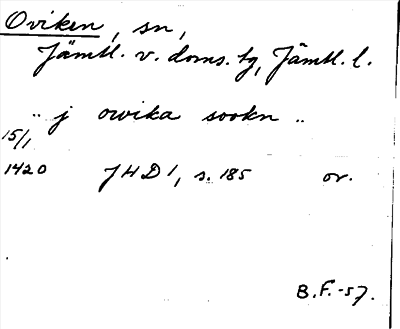 Oviken, sn,
Jämtl. v. doms. tg, Jämtl. l.
" j owika sookn "
15/1
1420 JHD 1, s. 185 or.
B.F. -57.